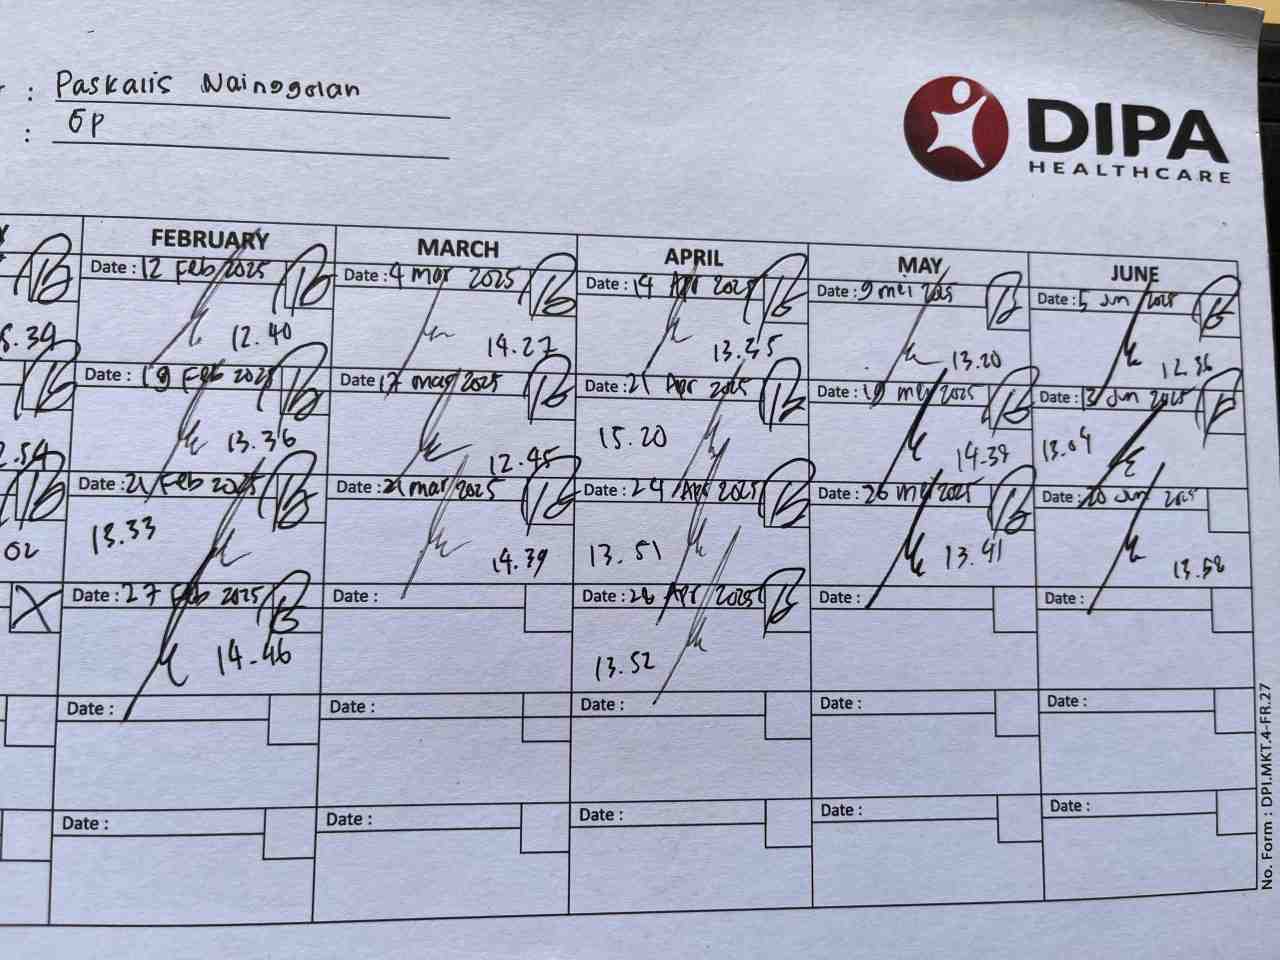 : Paskalis Nainggolan
: GP
DIPA
HEALTHCARE
FEBRUARY MARCH APRIL MAY JUNE
Date : 12 Feb 2025 Date : 4 mar 2025 Date : 14 Apr 2025 Date : 9 mei 2025 Date : 5 Jun 2025
12.40 14.27 13.35 13.20 12.36
Date : 19 Feb 2025 Date : 17 mar 2025 Date : 21 Apr 2025 Date : 19 mei 2025 Date : 13 Jun 2025
13.36 12.45 15.20 14.39 13.04
Date : 21 Feb 2025 Date : 21 mar 2025 Date : 24 Apr 2025 Date : 26 mei 2025 Date : 20 Jun 2025
02 13.33 14.39 13.51 13.41 13.58
Date : 27 Feb 2025 Date : Date : 28 Apr 2025 Date : Date :
14.46 13.52
Date : Date : Date : Date : Date :
Date : Date : Date : Date : Date :
No. Form : DPI.MKT.4-FR.27